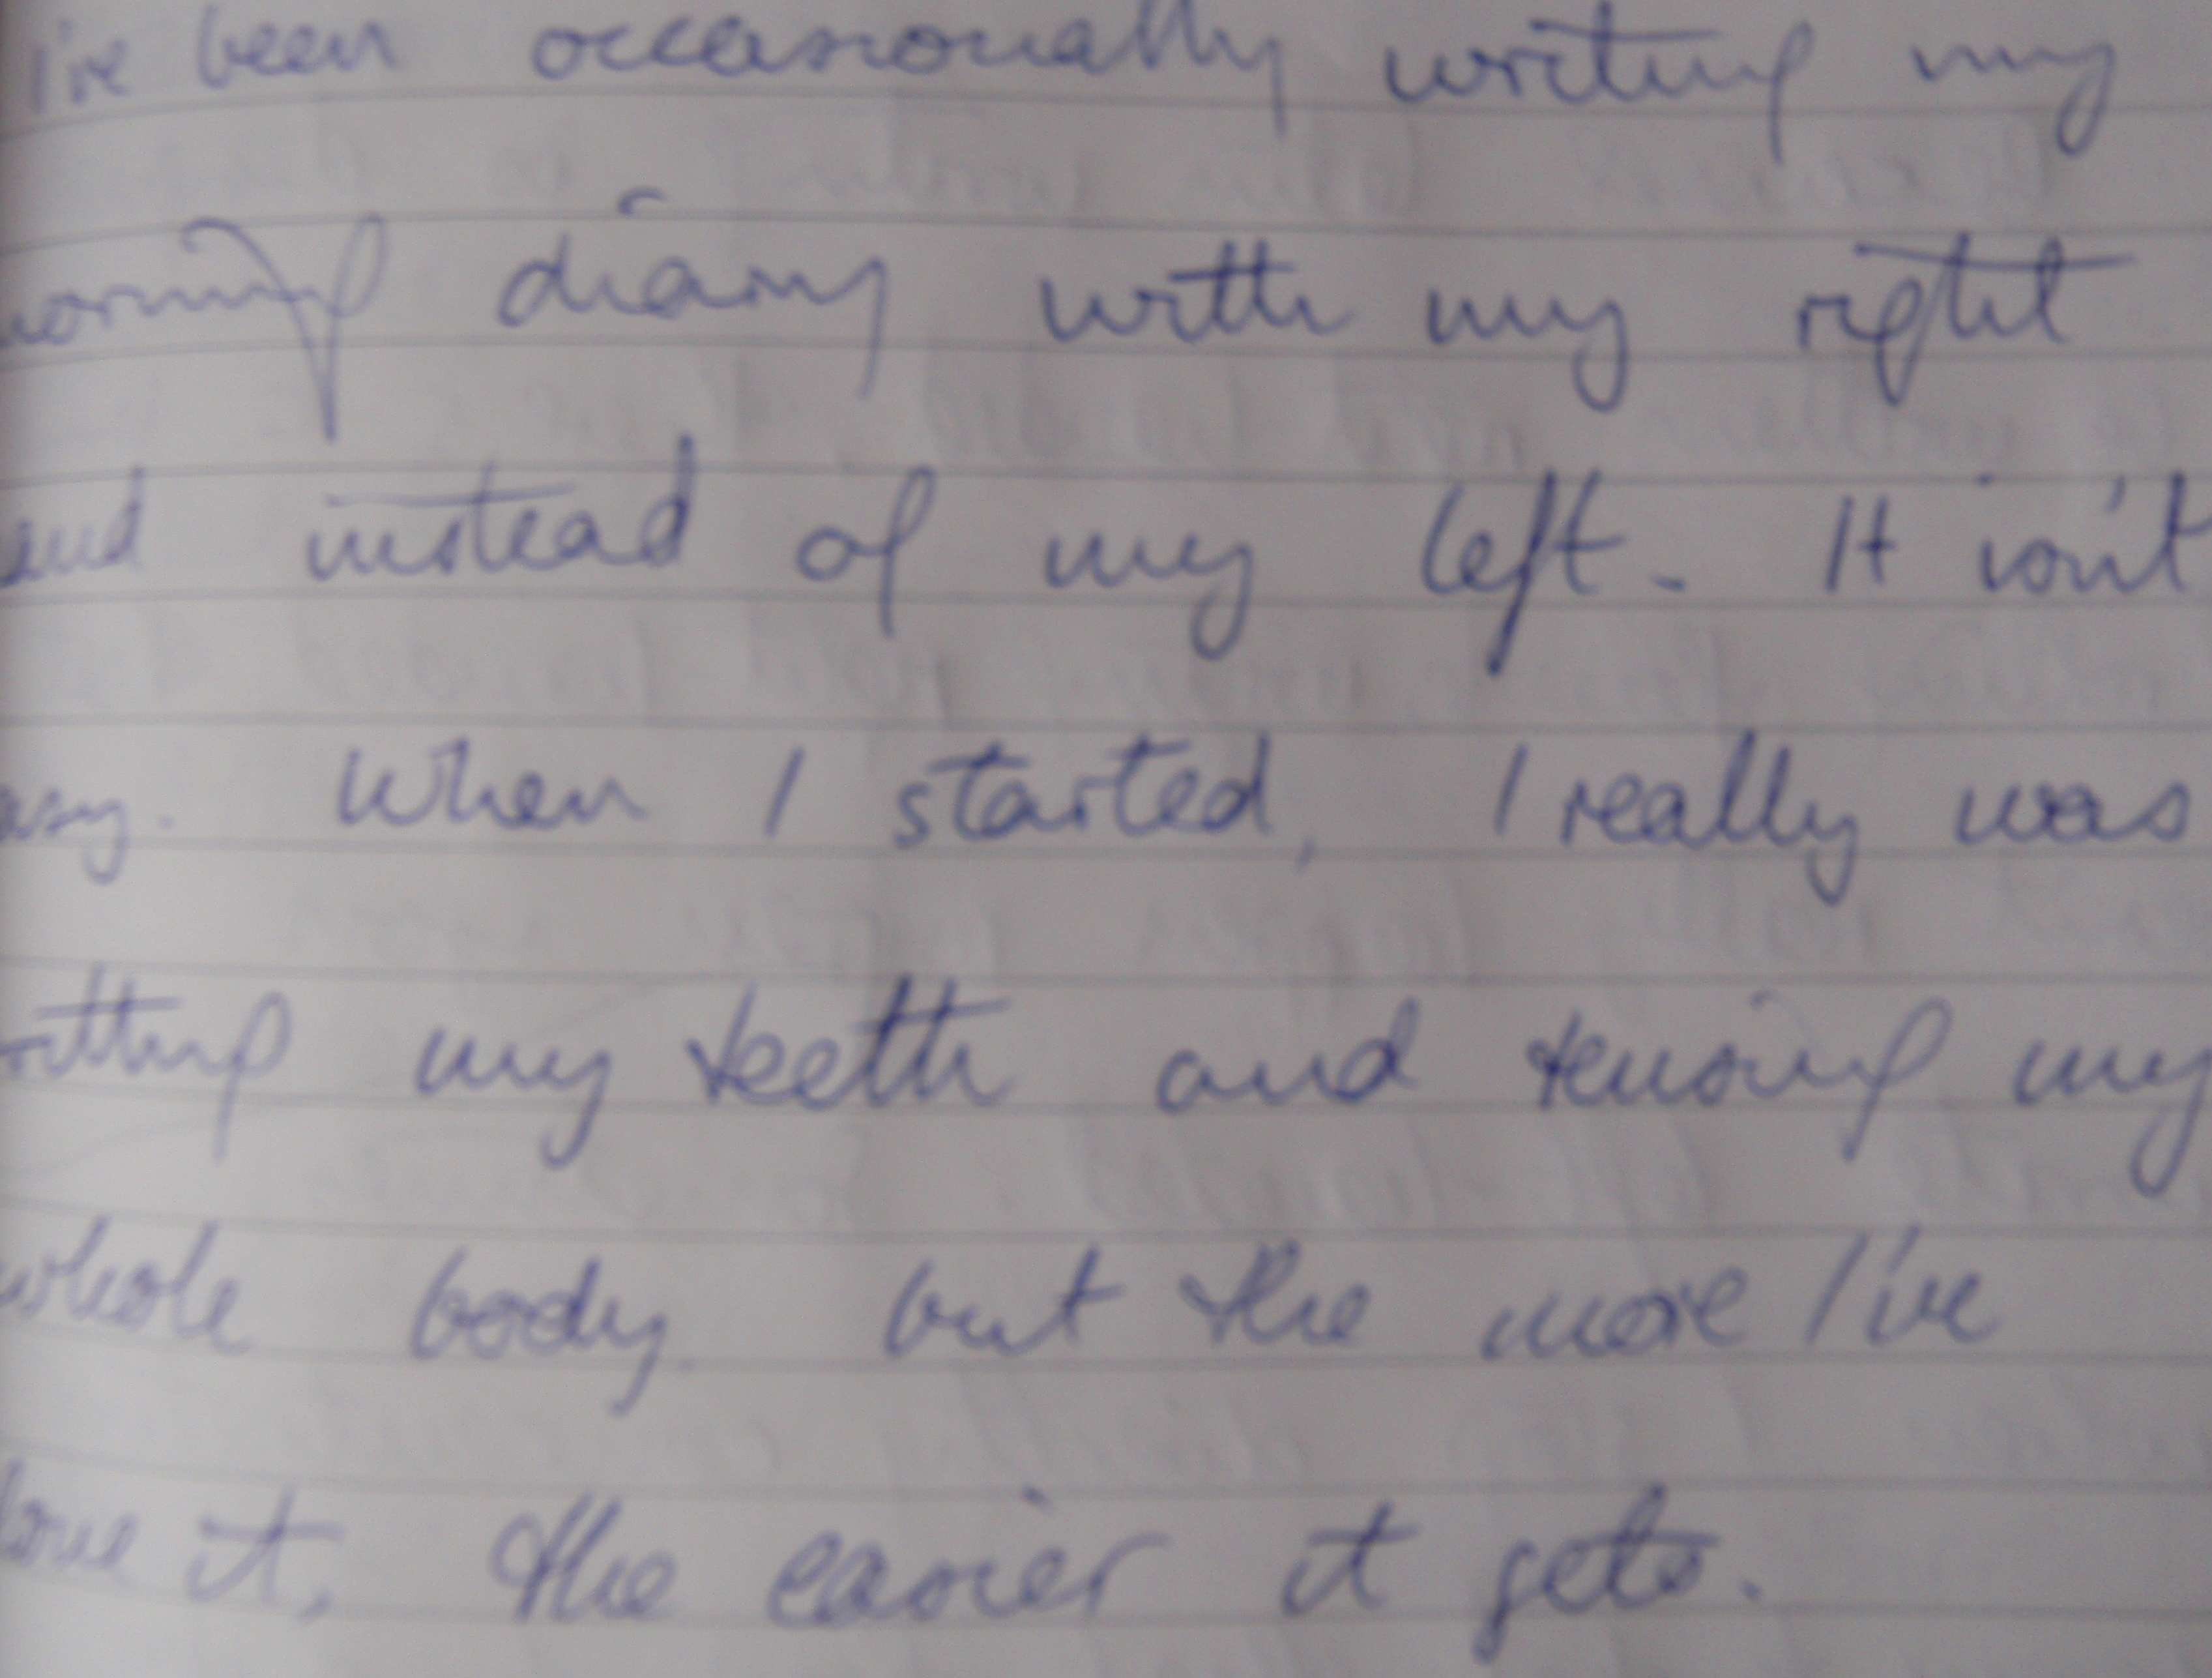 I've been occasionally writing my
orning diary with my right
and instead of my left. It isn't
asy. When I started, I really was
ritting my teeth and tensing my
whole body. but the more I've
done it, the easier it gets.